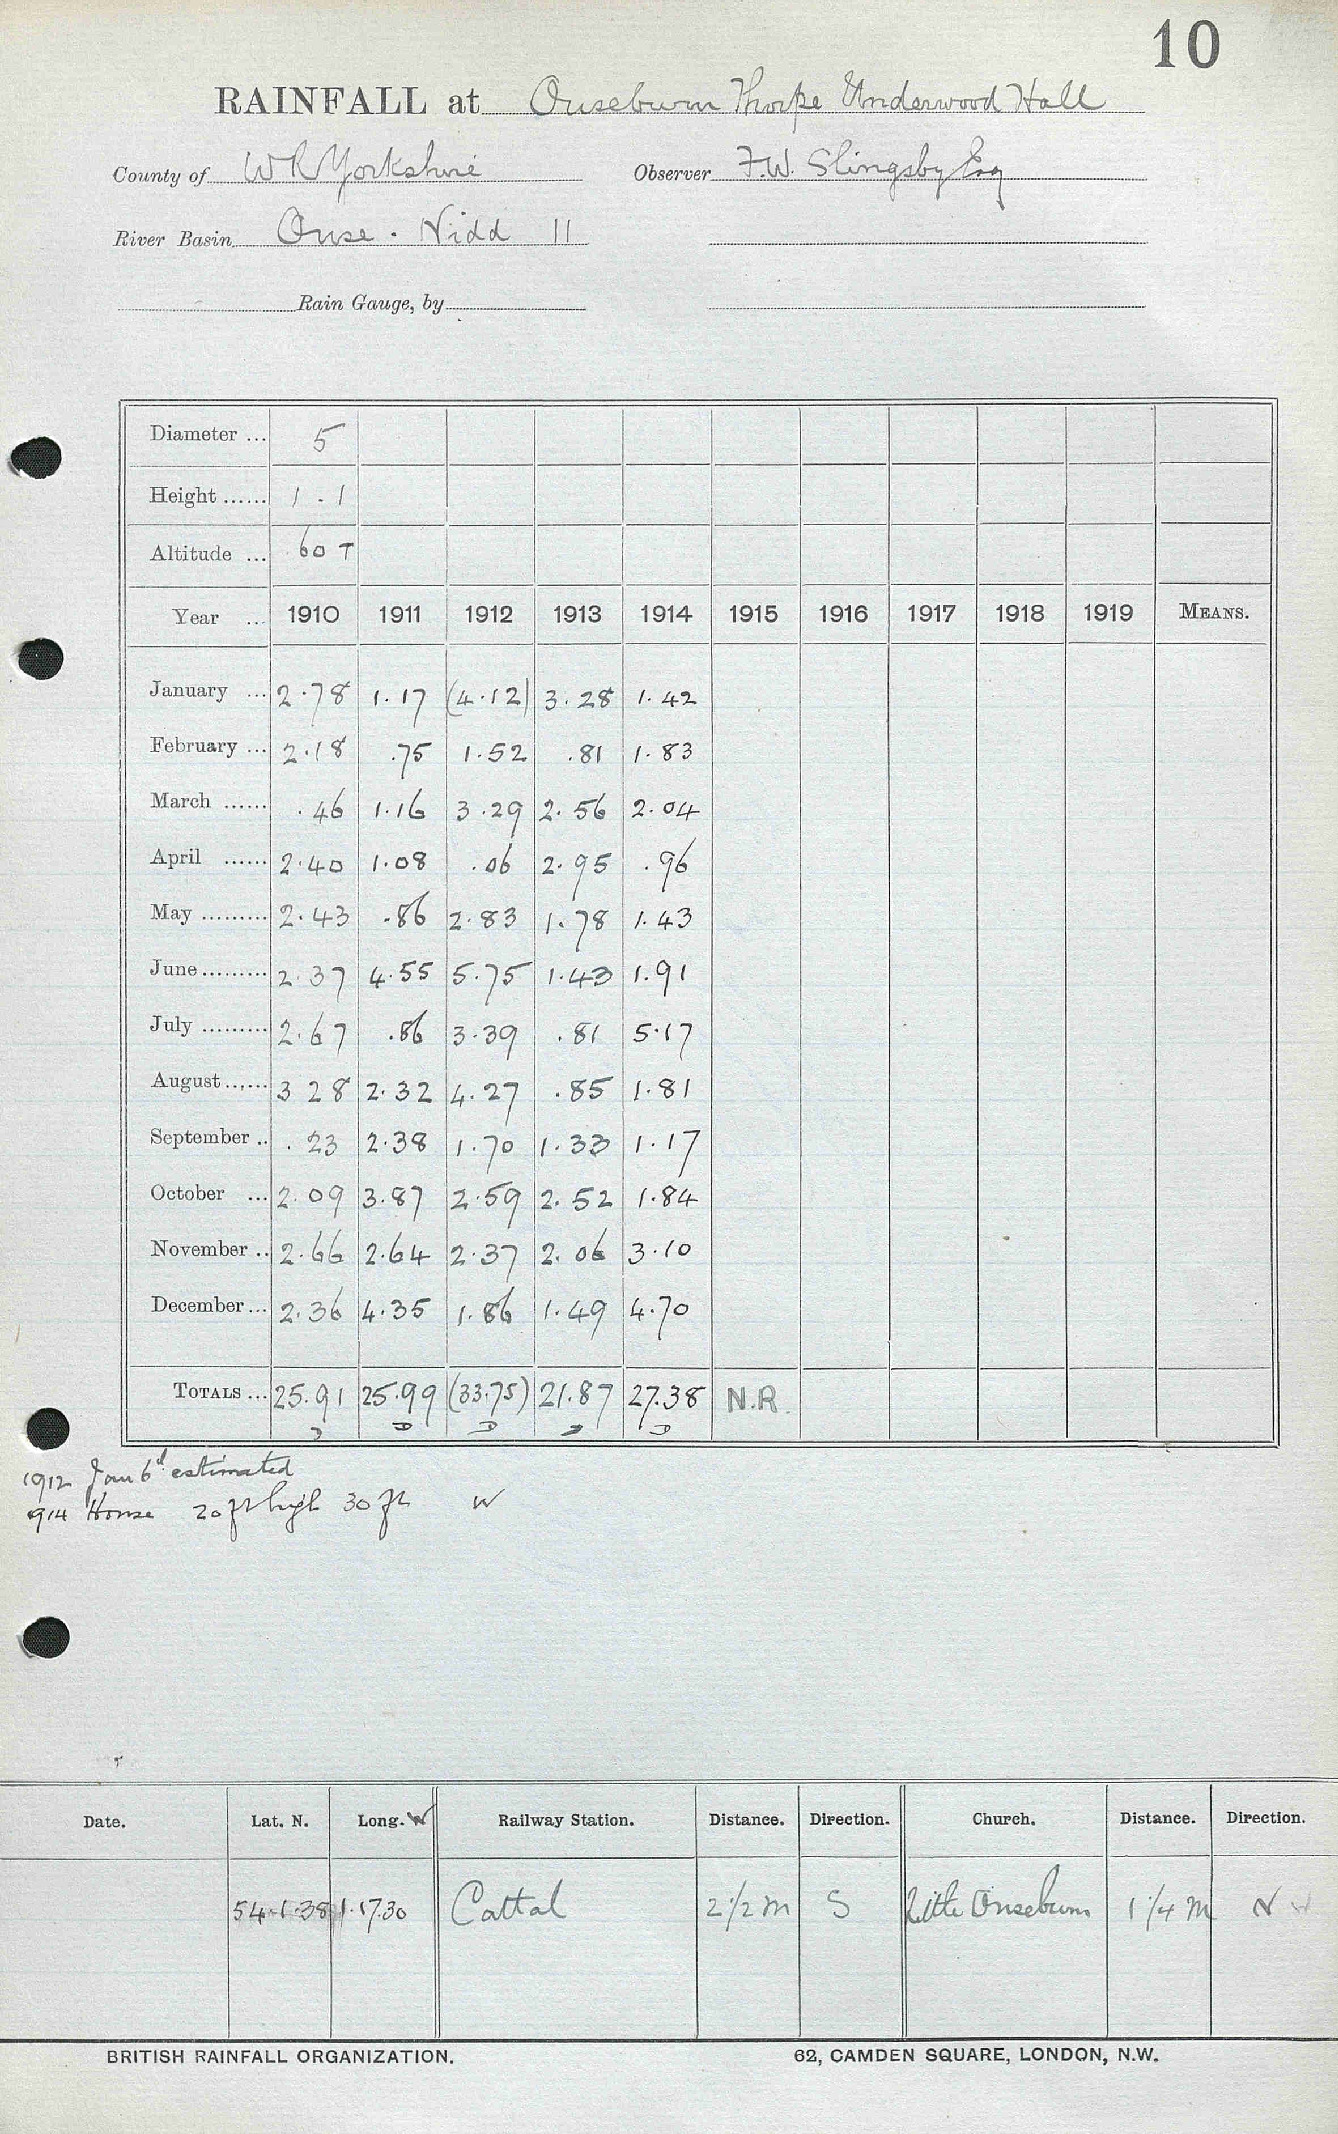 10
RAINFALL at Ouseburn Thorpe Underwood Hall
County of W R Yorkshire Observer F.W. Slingsby Esq
River Basin Ouse . Nidd 11
Rain Gauge, by
Diameter ... 5
Height ...... 1 . 1
Altitude ... 60 T
Year ... 1910 1911 1912 1913 1914 1915 1916 1917 1918 1919 MEANS.
January ... 2.78 1.17 (4.12) 3.28 1.42
February ... 2.18 .75 1.52 .81 1.83
March ...... .46 1.16 3.29 2.56 2.04
April ...... 2.40 1.08 .06 2.95 .96
May ......... 2.43 .86 2.83 1.78 1.43
June ......... 2.37 4.55 5.75 1.43 1.91
July ......... 2.67 .86 3.39 .81 5.17
August ...... 3 28 2.32 4.27 .85 1.81
September .. .23 2.38 1.70 1.33 1.17
October ... 2.09 3.87 2.59 2.52 1.84
November .. 2.66 2.64 2.37 2.06 3.10
December ... 2.36 4.35 1.86 1.49 4.70
TOTALS ... 25.91 25.99 (33.75) 21.87 27.38 N.R.
1912 Jan 6d estimated
1914 House 20 ft high 30 ft W
Date. Lat. N. Long. W Railway Station. Distance. Direction. Church. Distance. Direction.
54.1.38 1.17.30 Cattal 2 1/2 m S Little Ouseburn 1 1/4 m N W
BRITISH RAINFALL ORGANIZATION. 62, CAMDEN SQUARE, LONDON, N.W.